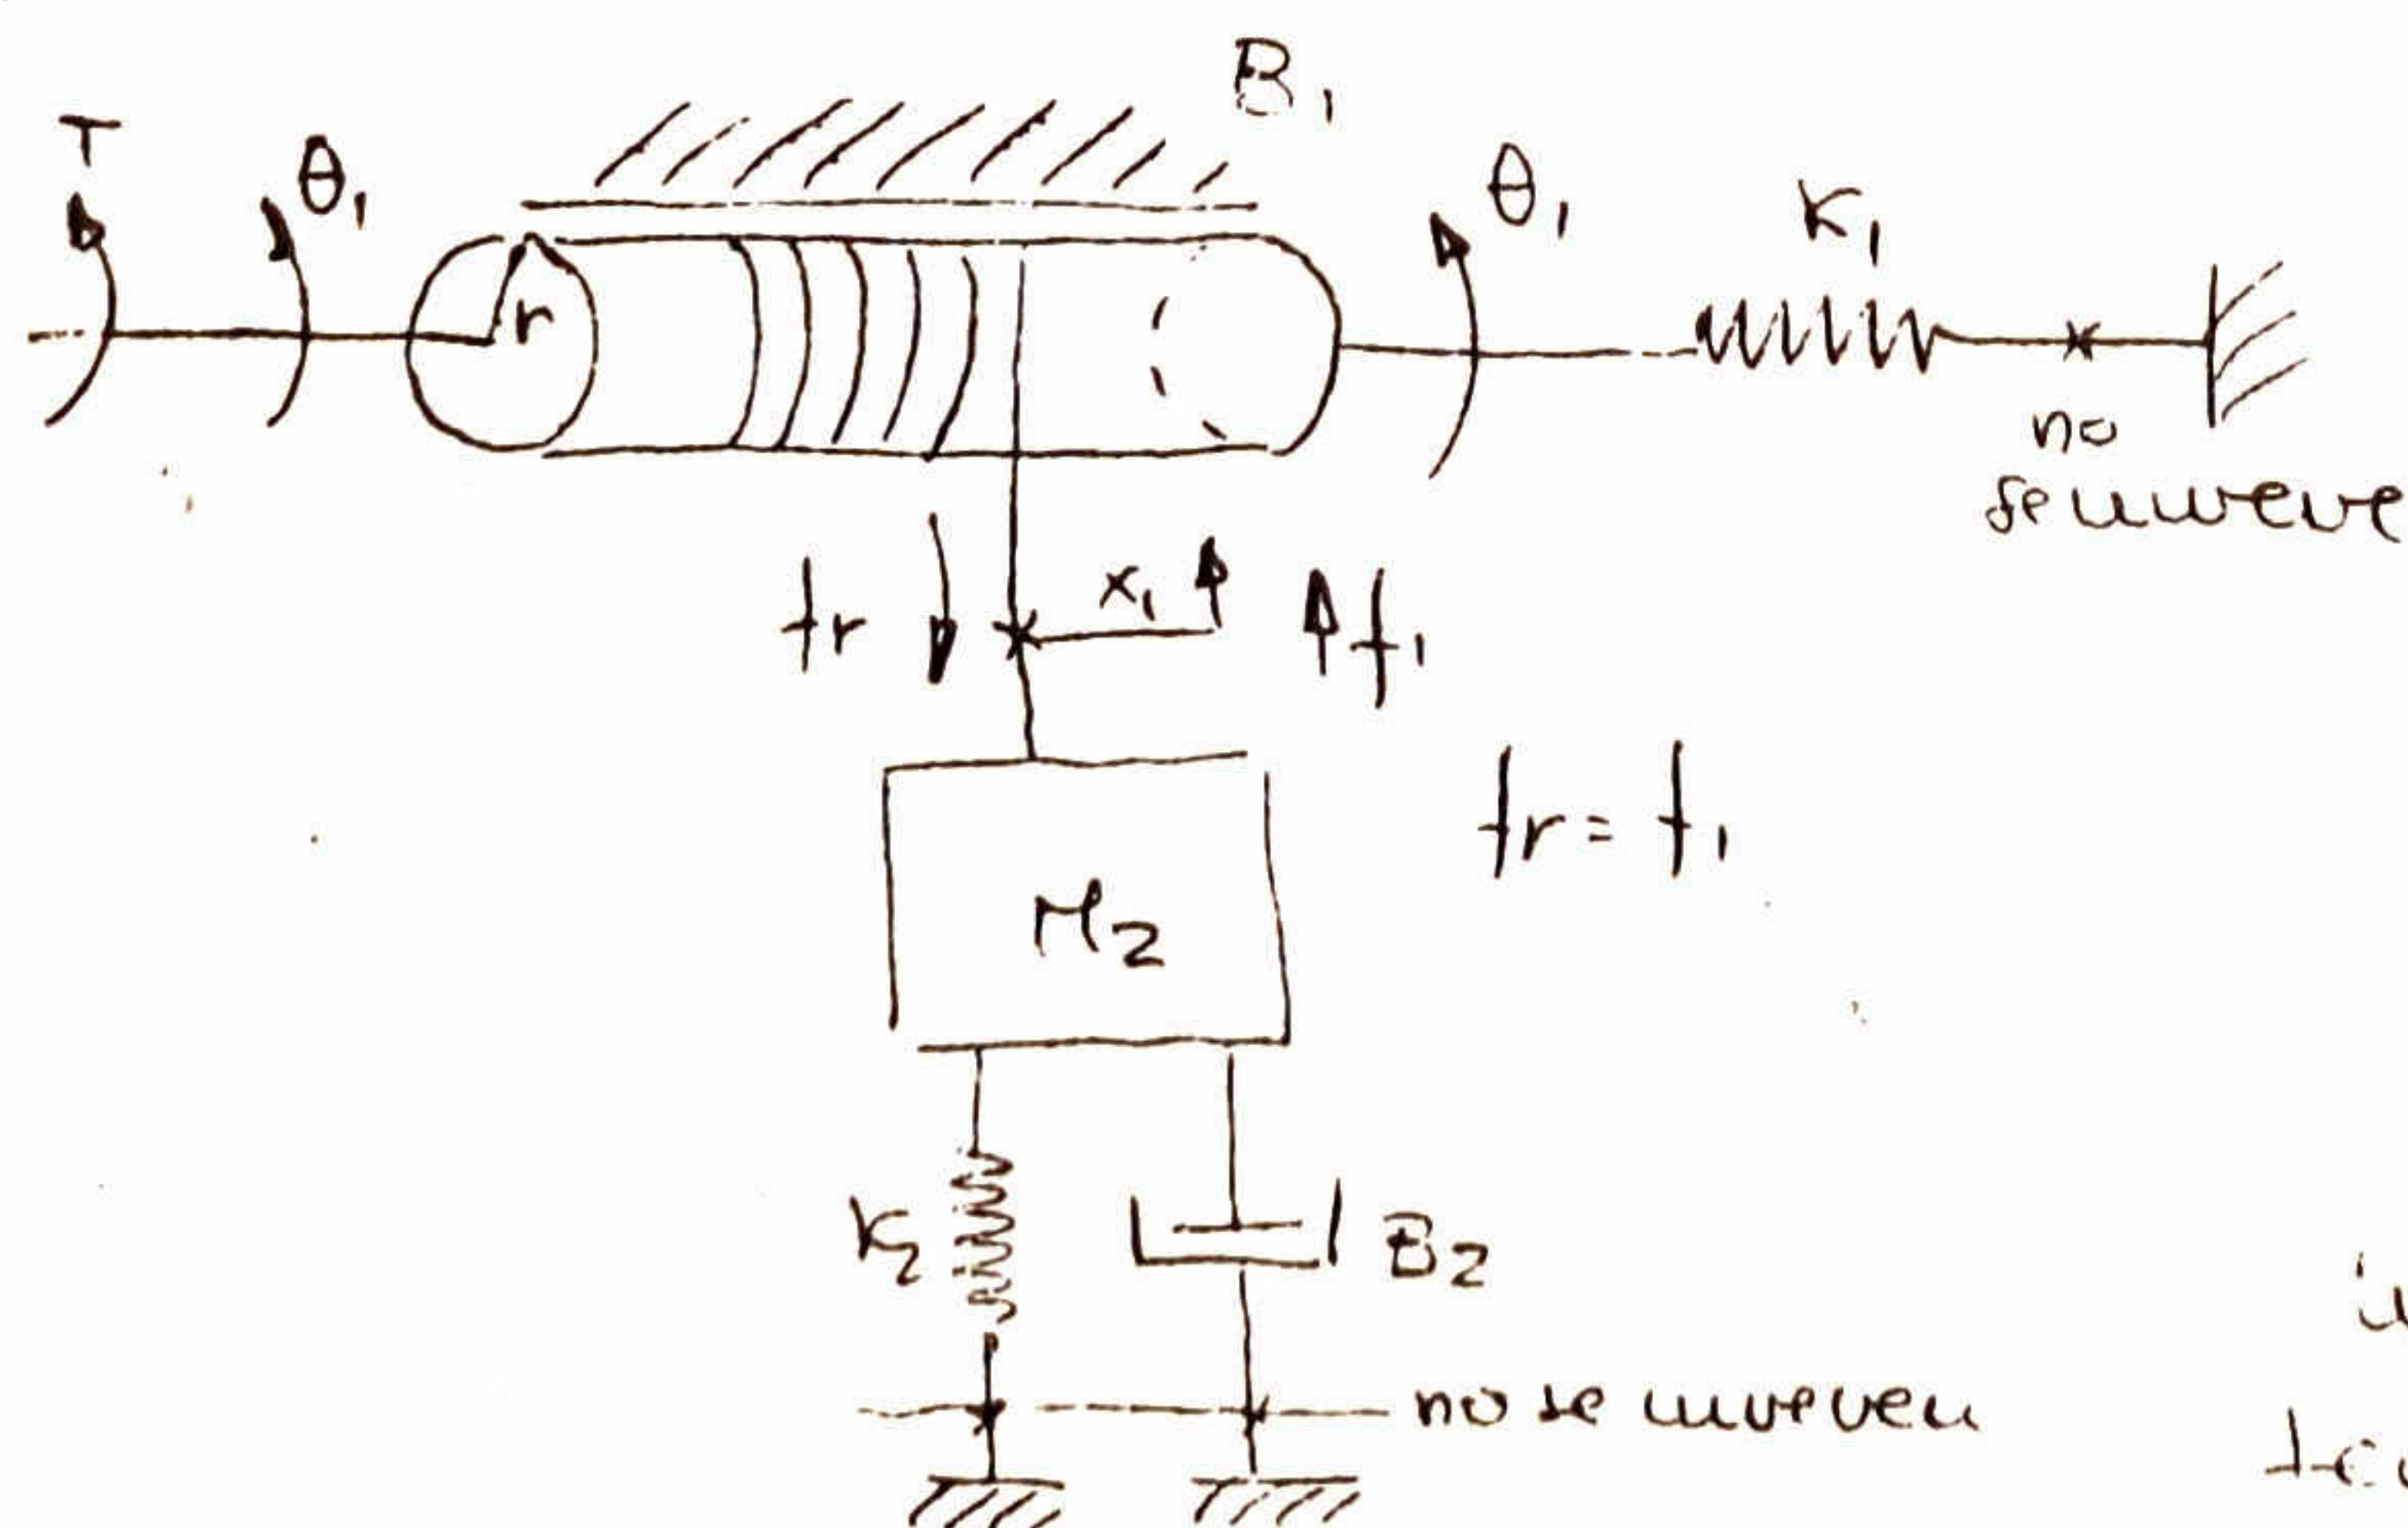 B₁
T
θ₁
θ₁
K₁
r
no
se mueve
fr
x₁
f₁
fr = f₁
M₂
K₂
B₂
no se mueven